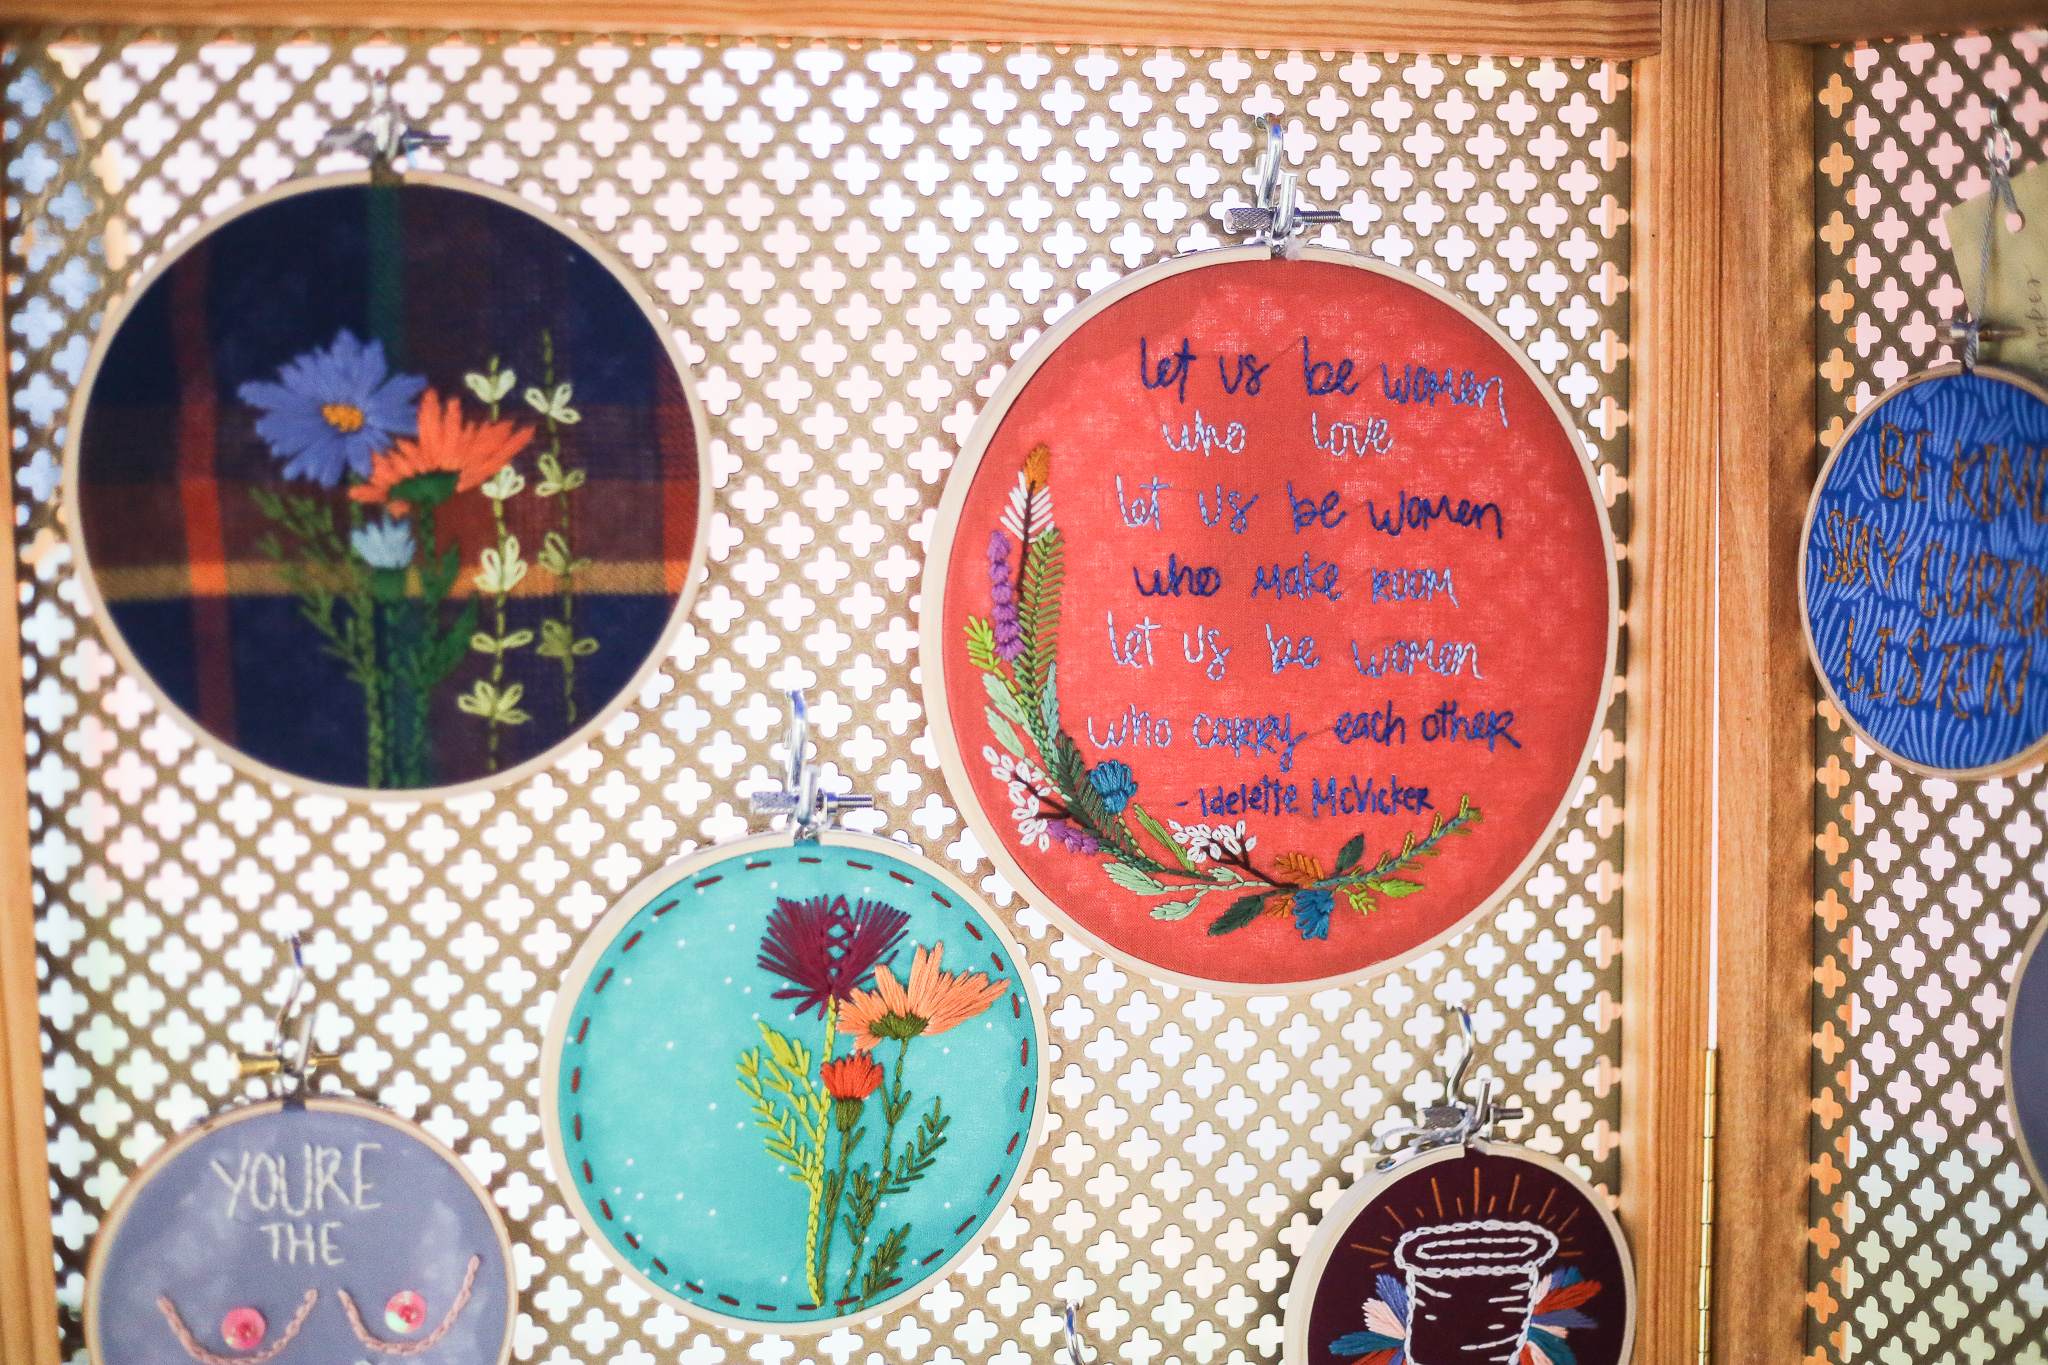 let us be women
who love
let us be women
who make room
let us be women
who carry each other
- Idelette McVicker
BE KIND
STAY CURIO
LISTEN
YOURE
THE